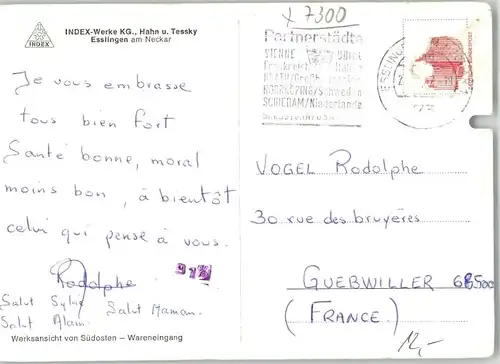 INDEX
INDEX-Werke KG., Hahn u. Tessky
Esslingen am Neckar
Je vous embrasse
tous bien fort
Santé bonne, moral
moins bon, à bientôt
celui qui pense à vous.
Rodolphe
Salut Sylvie Salut Maman
Salut Alain
Werksansicht von Südosten – Wareneingang
x 7300
Partnerstädte
VIENNE UDINE
Frankreich Italien
NEATH/Großbritannien
NORRKÖPING/Schweden
SCHIEDAM/Niederlande
ESSLINGEN
VOGEL Rodolphe
30 rue des bruyères
GUEBWILLER 68500
(FRANCE.)
12,-